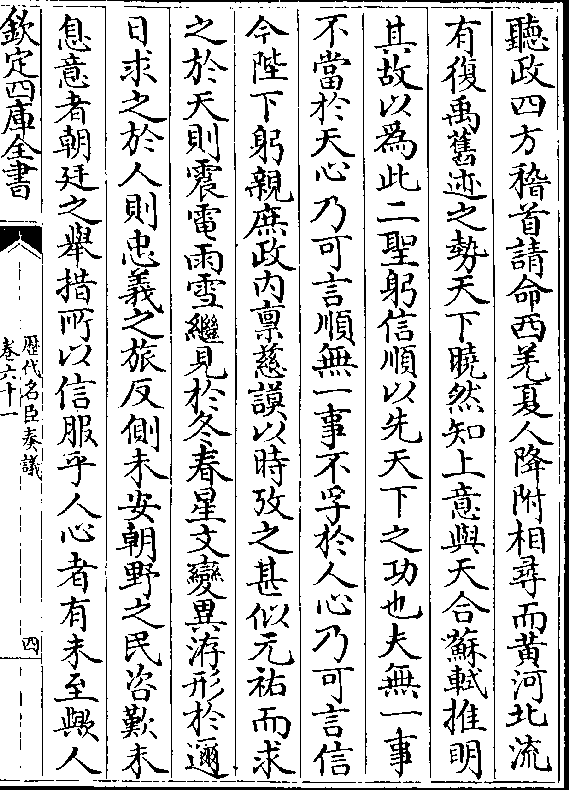 聽政四方稽首請命西羌夏人降附相尋而黄河北流
有復禹舊迹之勢天下曉然知上意與天合蘇軾推明
其故以為此二聖躬信順以先天下之功也夫無一事
不當於天心乃可言順無一事不孚於人心乃可言信
今陛下躬親庶政内禀慈謨以時攷之甚似元祐而求
之於天則震電雨雪繼見於冬春星文變異洊形於邇
日求之於人則忠義之旅反側未安朝野之民咨歎未
息意者朝廷之舉措所以信服乎人心者有未至歟人
欽定四庫全書
歴代名臣奏議
卷六十一
四